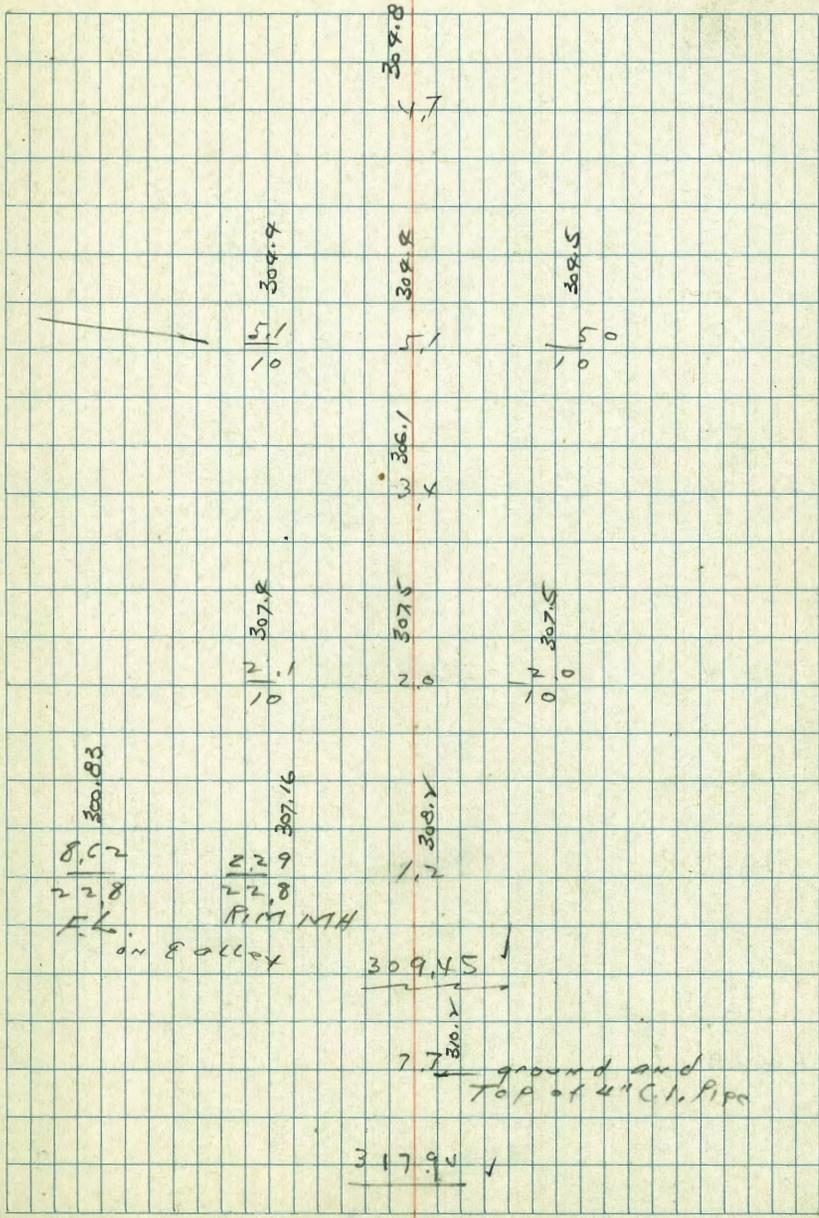 304.8
4.7
304.4 304.4 304.5
5.1 5.1 5.0
10 10
306.1
3.4
307.4 307.5 307.5
2.1 2.0 2.0
10 10
300.83 307.16 308.2
8.62 2.29 1.2
22.8 22.8
F.L. RIM MH
on ℄ alley
309.45 ✓
310.2
7.7 ground and
Top of 4" C.I. Pipe